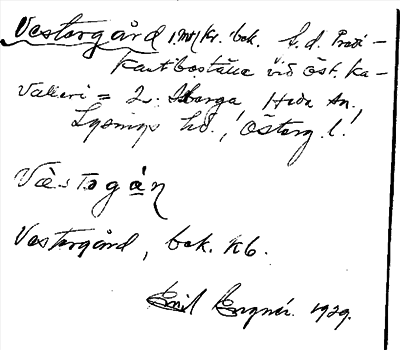 Vestergård, 1 mtl kr. bok. f. d. Predi-
kantboställe vid Öst. ka-
valleri = 2. Skorga, Heda sn.,
Lysings hd., Österg. l.
Västəgán
Vestergård, bek. kb.
Emil 1929.